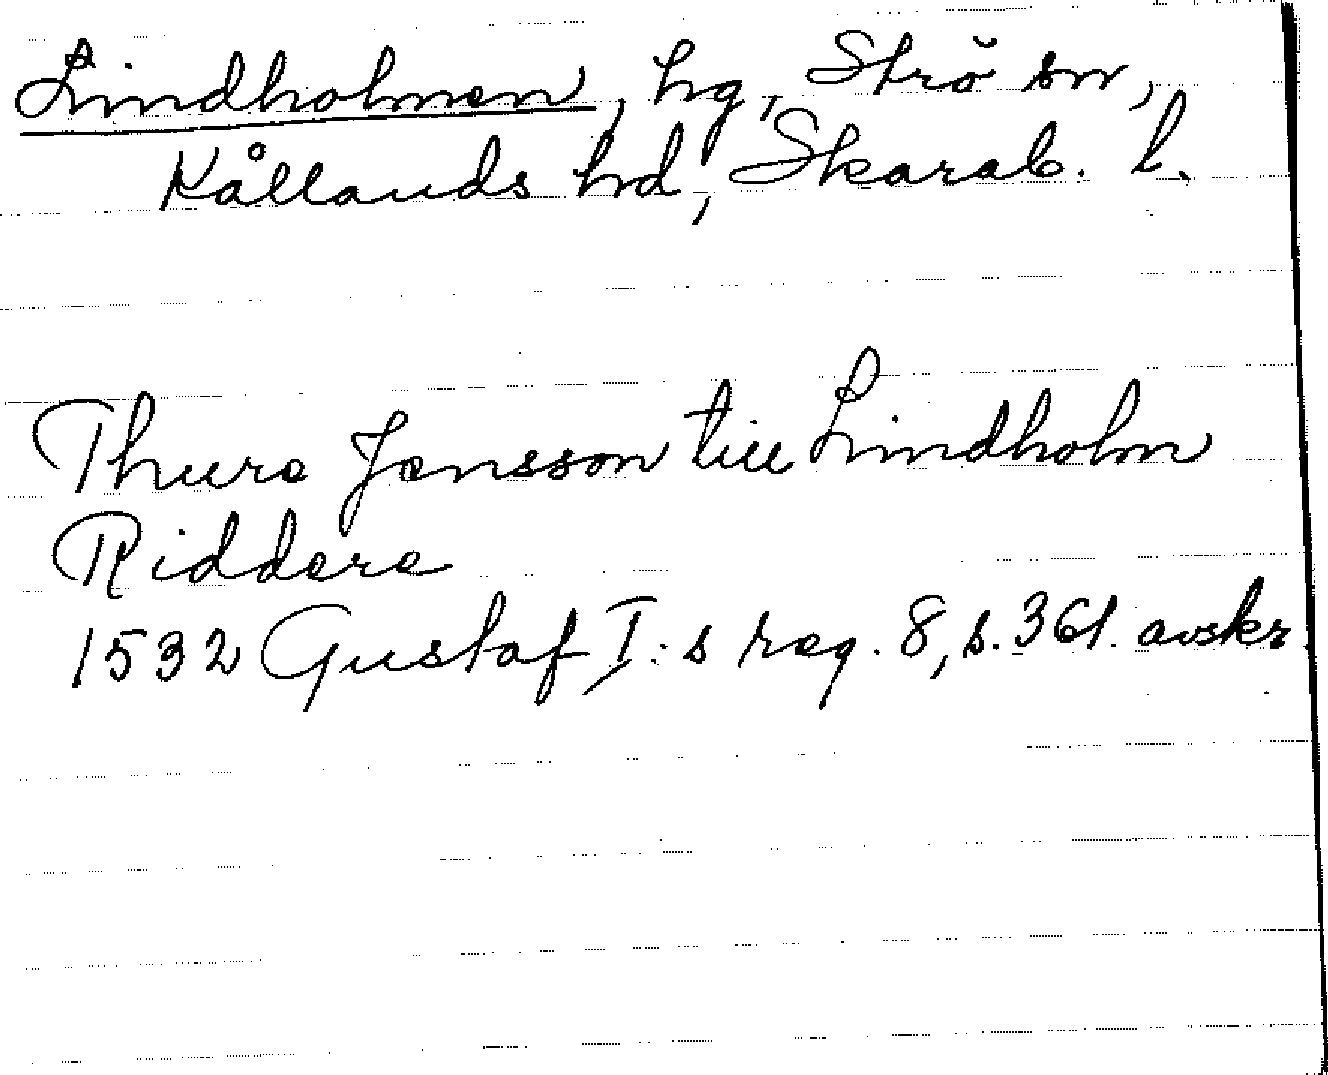 Lindholmen, hg, Strö sn,
Kållands hd, Skarab. l.
Thure Jensson till Lindholm
Riddere
1532 Gustaf I:s reg. 8, s. 361. avskr.